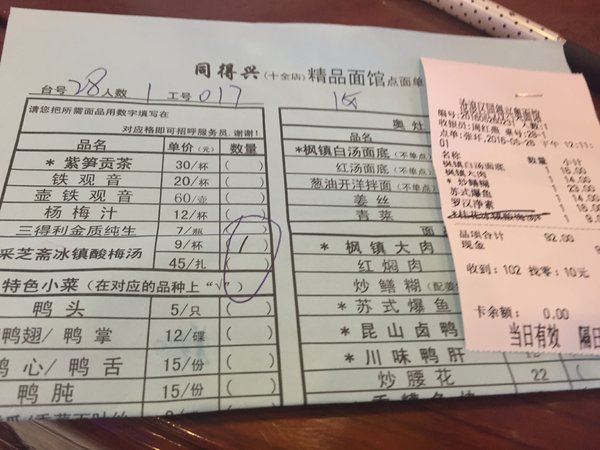 同得兴(十全店)精品面馆点面单
台号 28 人数 1 工号 017
请您把所需面品用数字填写在
对应格即可招呼服务员.谢谢!
品名 单价(元) 数量
* 紫笋贡茶 30/杯 ( )
铁观音 20/杯 ( )
壶铁观音 60/壶 ( )
杨梅汁 12/杯 ( )
三得利金质纯生 7/瓶 ( )
采芝斋冰镇酸梅汤 9/杯 ( 1 )
45/扎 ( )
特色小菜(在对应的品种上“√”)
鸭头 5/只 ( )
鸭翅/鸭掌 12/碟 ( )
心/鸭舌 15/份 ( )
鸭肫 15/份 ( )
奥灶
品名
*枫镇白汤面底(不单点)
红汤面底(不单点)
葱油开洋拌面(不单点)
姜丝
青菜
*枫镇大肉
红焖肉
炒鳝糊
*苏式爆鱼
*昆山卤鸭
*川味鸭肝
炒腰花 22 (
人数:1
收银员:周红燕 桌台:28-1
点单:张环,2016-05-26 下午 12:11:
01
名称 数量 小计
枫镇白汤面底
枫镇大肉
* 炒鳝糊
苏式爆鱼
罗汉净素
品项合计 92.00
现金
收到:102 找零:10元
卡余额: 0.00
当日有效 隔日